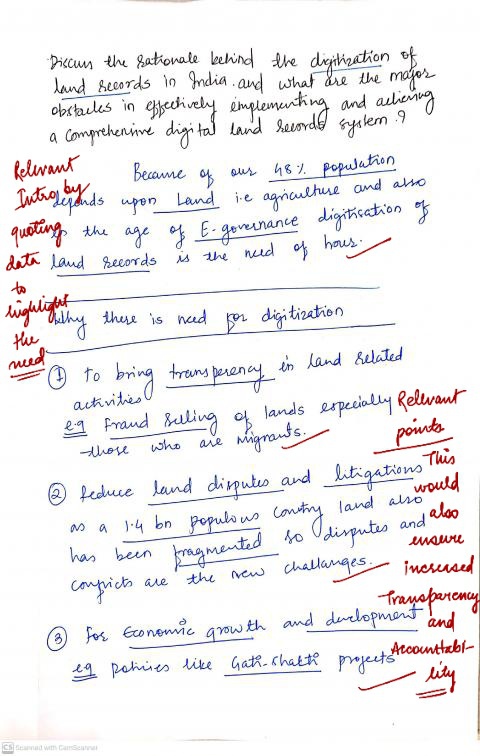 Discuss the rationale behind the digitization of
land records in India. and what are the major
obstacles in effectively implementing and achieving
a comprehensive digital land records system.?
Relevant
Intro by
quoting
data
to
highlight
the
need
Because of our 48% population
depends upon Land i.e agriculture and also
in the age of E-governance digitisation of
land records is the need of hour.
Why there is need for digitization
① To bring transperency in land related
activities
e.g Fraud Selling of lands especially
those who are migrants.
Relevant
points
② Reduce land disputes and litigations
as a 1.4 bn populous country land also
has been fragmented so disputes and
conflicts are the new challanges.
This
would
also
ensure
increased
Transparency
and
Accountabi-
lity
③ For Economic growth and development
eg policies like Gati-Shakti projects
CS Scanned with CamScanner